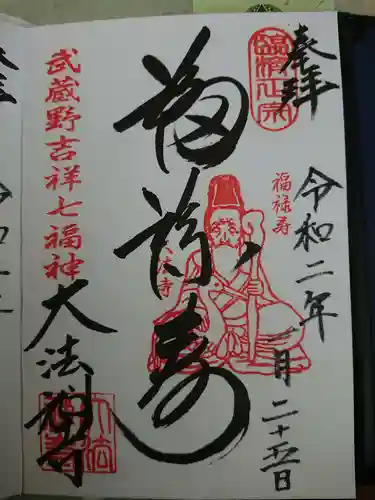 奉拝
臨済正宗
令和二年一月二十五日
福禄寿
福禄寿
武蔵野吉祥七福神
大法禅寺